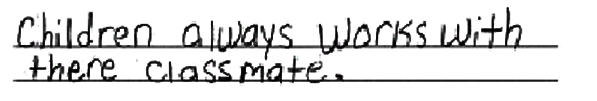 Children always works with
there classmate.